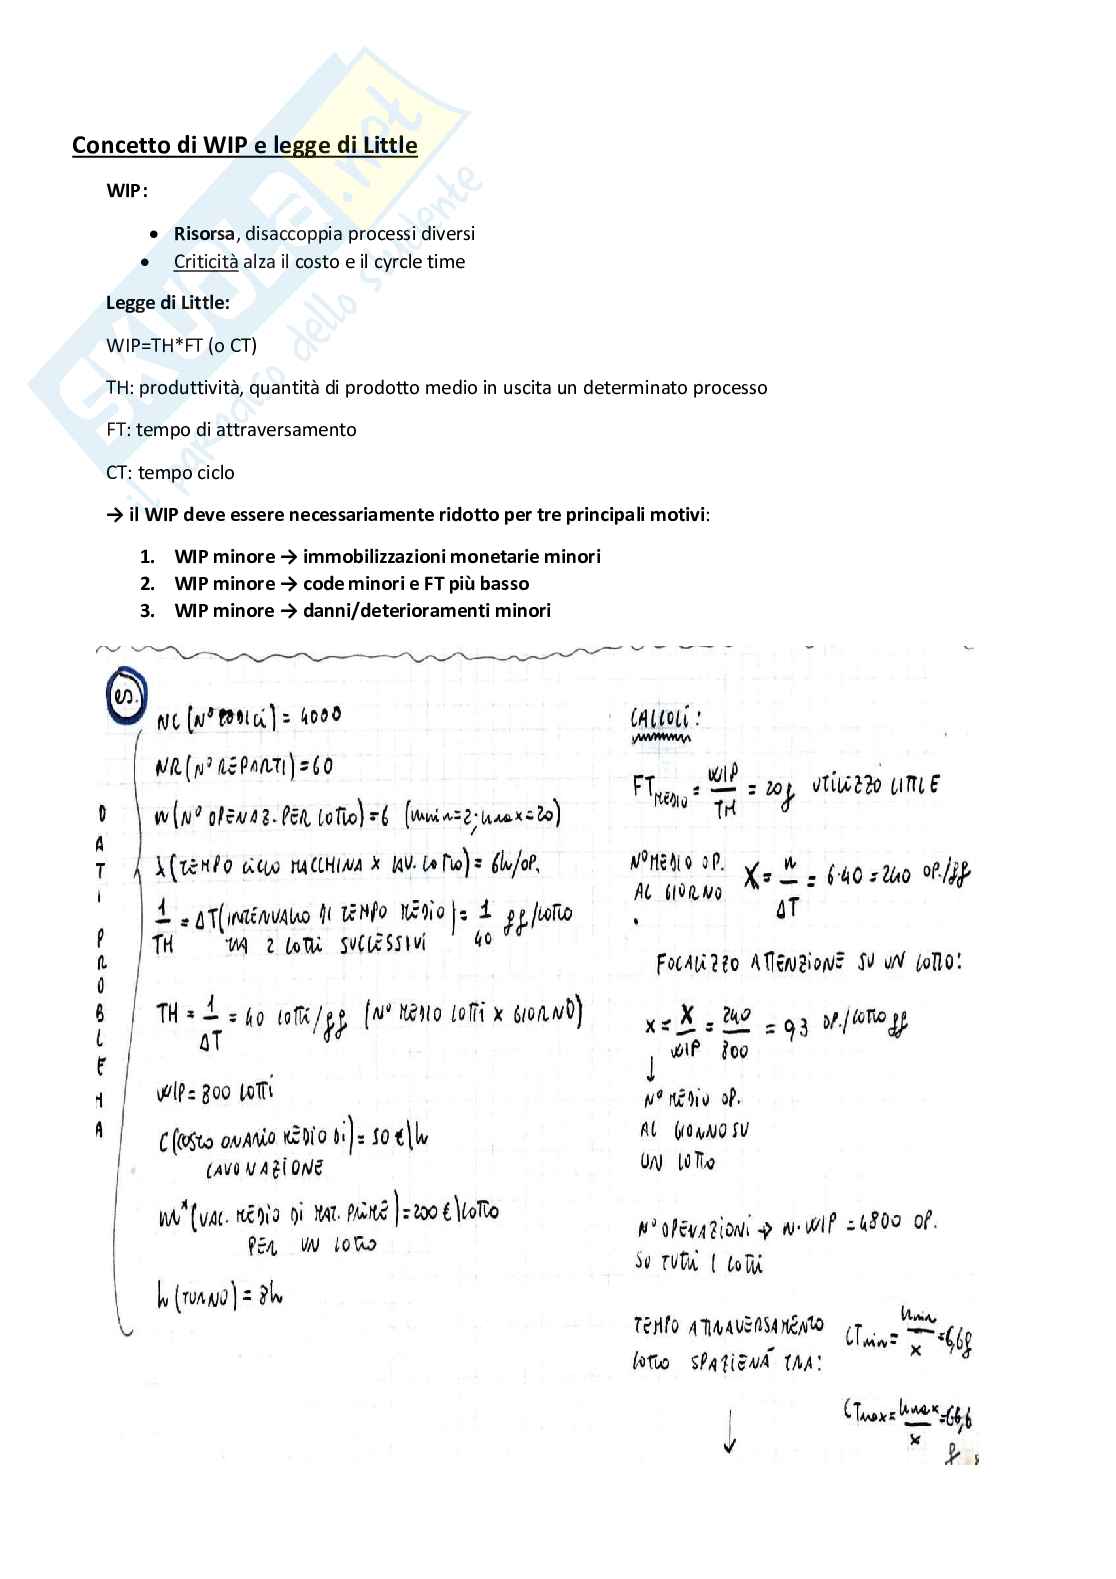 Concetto di WIP e legge di Little
WIP:
• Risorsa, disaccoppia processi diversi
• Criticità alza il costo e il cyrcle time
Legge di Little:
WIP=TH*FT (o CT)
TH: produttività, quantità di prodotto medio in uscita un determinato processo
FT: tempo di attraversamento
CT: tempo ciclo
→ il WIP deve essere necessariamente ridotto per tre principali motivi:
1. WIP minore → immobilizzazioni monetarie minori
2. WIP minore → code minori e FT più basso
3. WIP minore → danni/deterioramenti minori
SKUOLA.net
il paradiso dello studente
es.
DATI PROBLEMA
NC (N° CODICI) = 4000
NR (N° REPARTI) = 60
n (N° OPERAZ. PER LOTTO) = 6 (nmin=2; nmax=20)
λ (TEMPO CICLO MACCHINA X LAV. LOTTO) = 6h/OP.
1/TH = ΔT (INTERVALLO DI TEMPO MEDIO) = 1/40 gg/LOTTO
TRA 2 LOTTI SUCCESSIVI
TH = 1/ΔT = 40 LOTTI/gg (N° MEDIO LOTTI X GIORNO)
WIP = 800 LOTTI
C (COSTO ORARIO MEDIO DI) = 50 €\h
LAVORAZIONE
m* (VAL. MEDIO DI MAT. PRIME) = 200 €\LOTTO
PER UN LOTTO
h (TURNO) = 8h
CALCOLI:
FT MEDIO = WIP/TH = 20g UTILIZZO LITTLE
N° MEDIO OP.
AL GIORNO X = n/ΔT = 6·40 = 240 OP./gg
FOCALIZZO ATTENZIONE SU UN LOTTO:
x = X/WIP = 240/800 = 0,3 OP./LOTTO gg
↓
N° MEDIO OP.
AL GIORNO SU
UN LOTTO
N° OPERAZIONI → n·WIP = 4800 OP.
SU TUTTI I LOTTI
TEMPO ATTRAVERSAMENTO CTmin = nmin/x = 6,6g
LOTTO SPAZIERÁ TRA:
CTmax = nmax/x = 66,6 g
↓